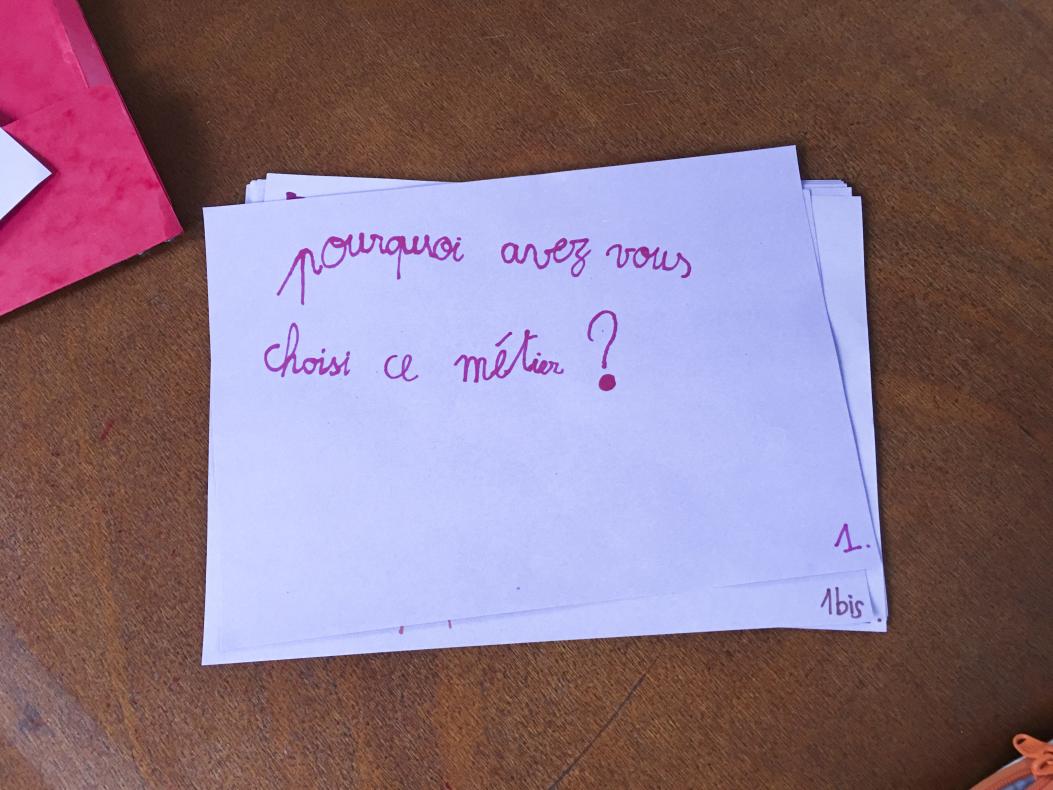 pourquoi avez vous
choisi ce métier ?
1.
1bis